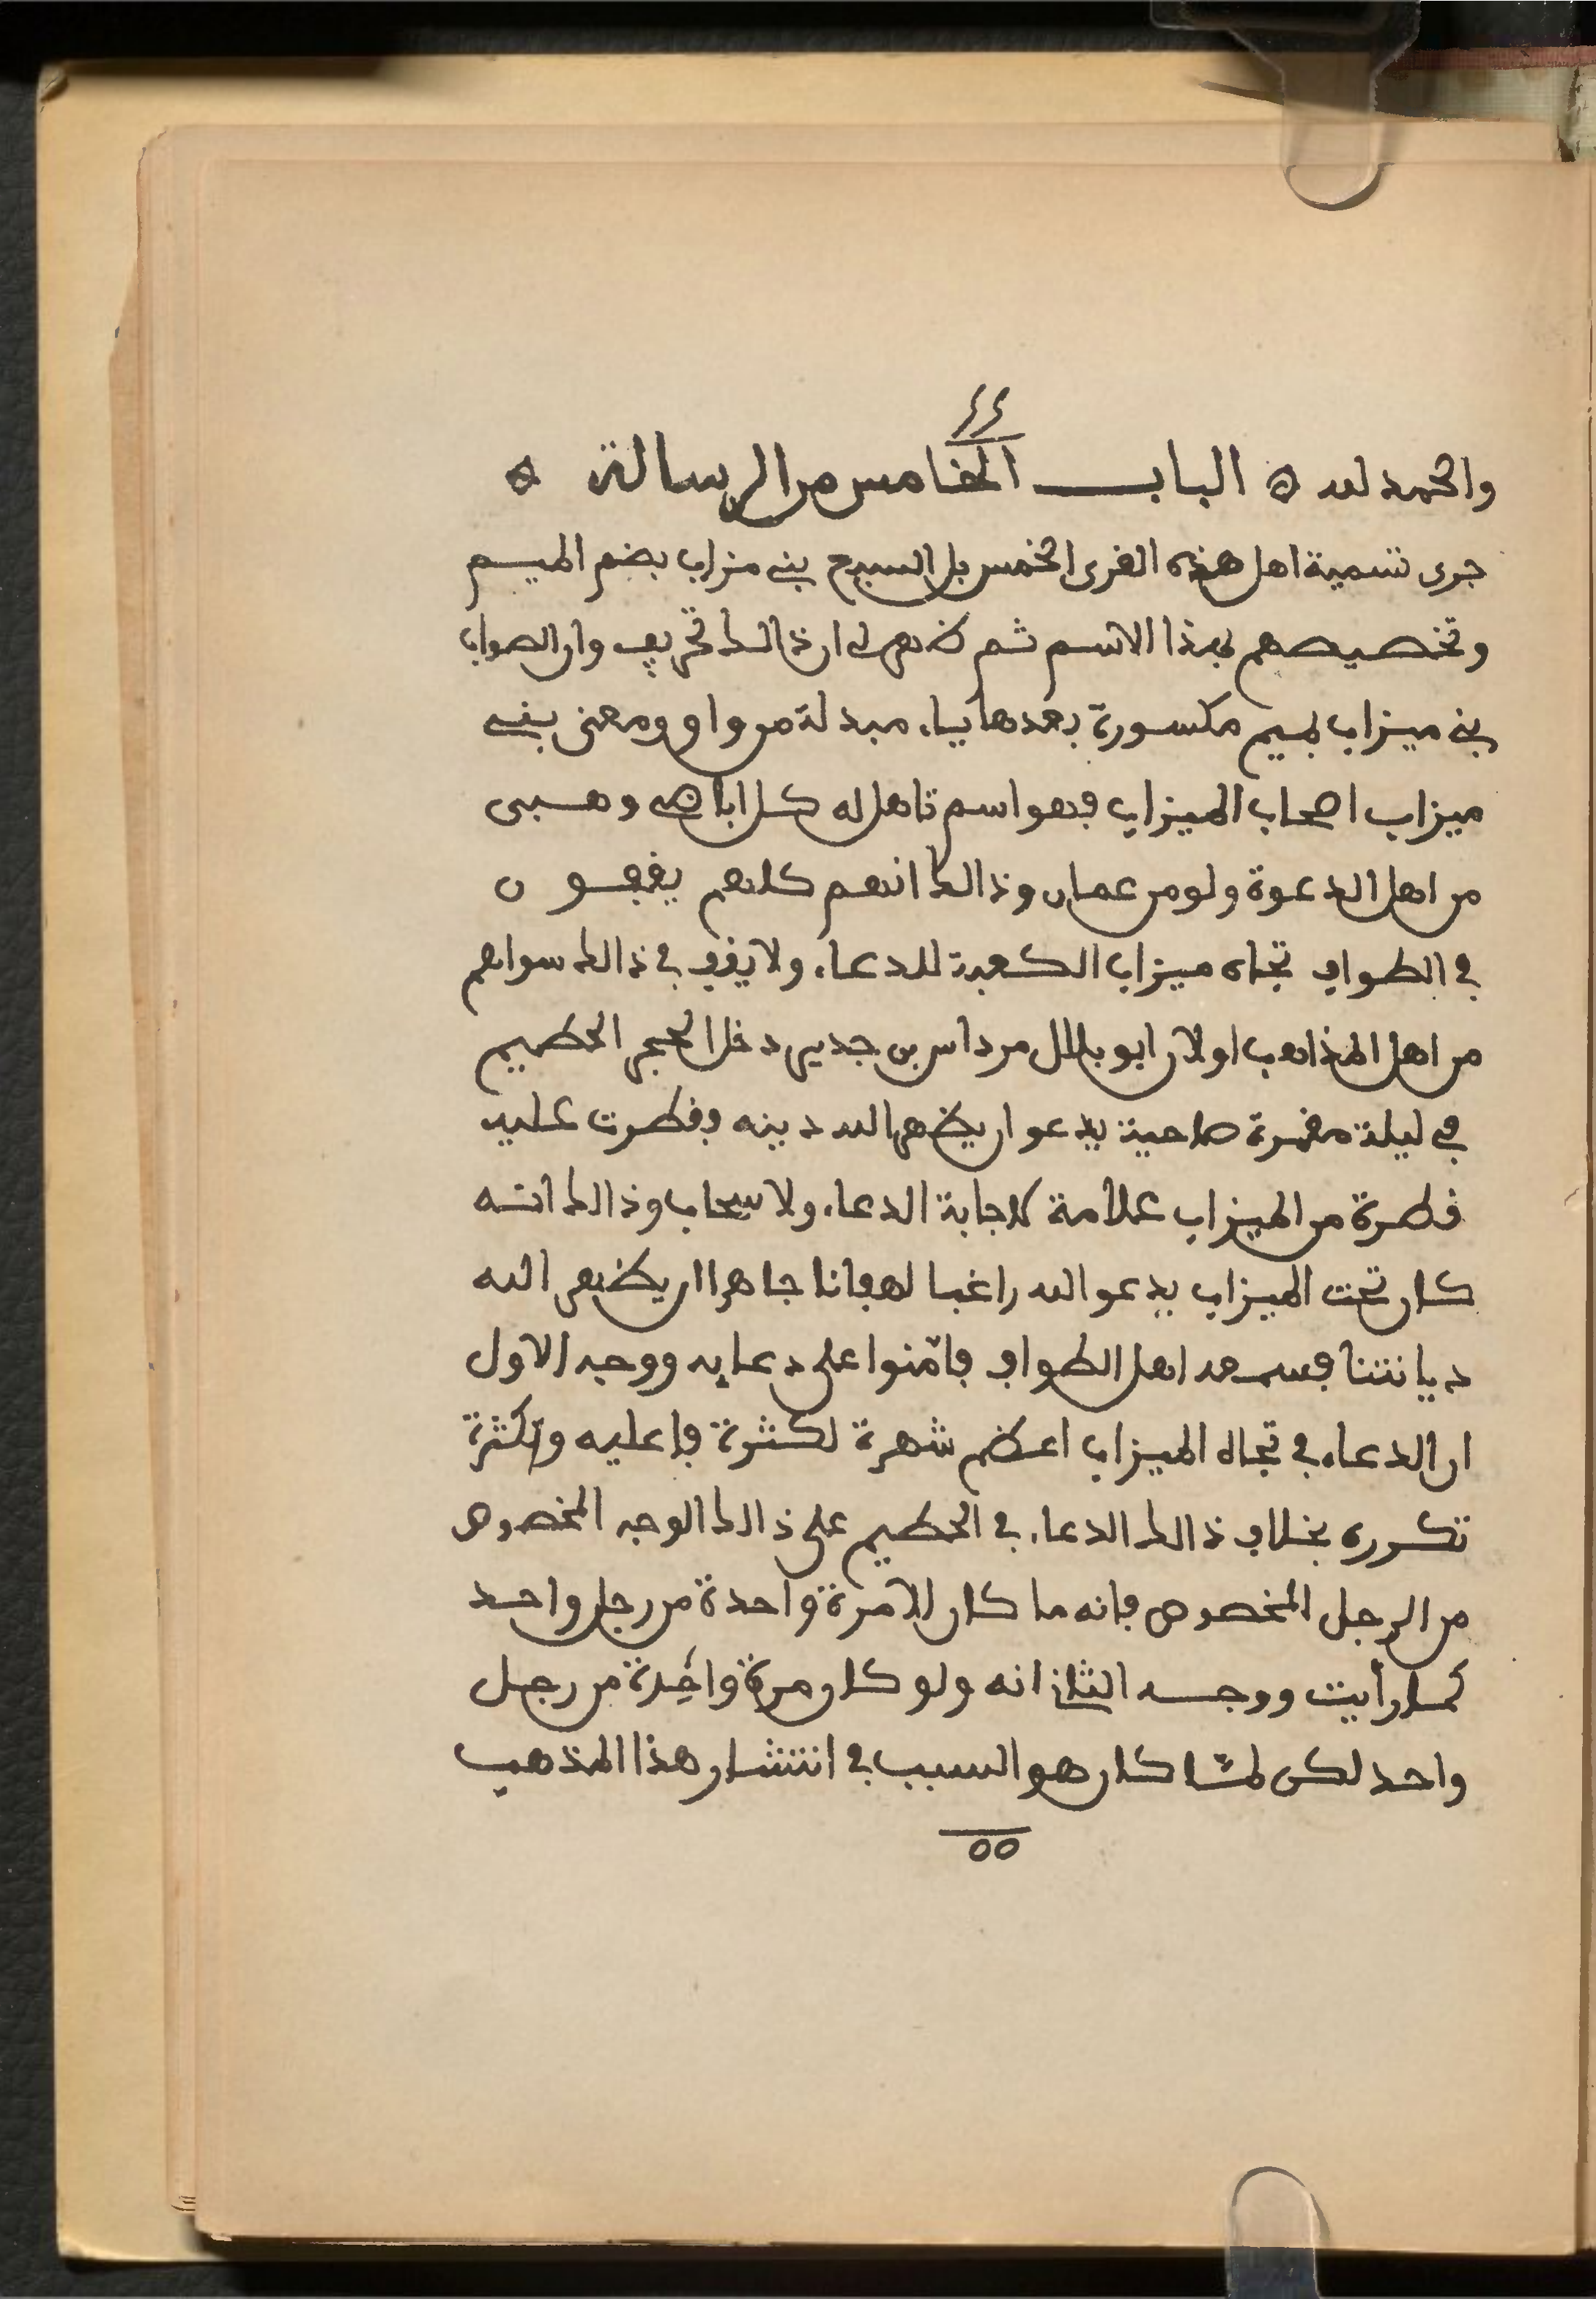 ٤٤
والحمد لله ه الباب الخامس من الرسالة ه
جرى تسمية اهل هذه القرى الخمس بل السبع بني مزاب بضم الميم
وتخصيصهم بهذا الاسم ثم ظهر لي ان ذالك تحريف وان الصواب
بني ميزاب بميم مكسورة بعدها ياء مبدلة من واو ومعنى بني
ميزاب اصحاب الميزاب فهو اسم تاهل له كل اباضي وهبي
من اهل الدعوة ولو من عمان وذالك انهم كلهم يقفون
في الطواف تجاه ميزاب الكعبة للدعاء ولا يقف في ذالك سواهم
من اهل المذاهب او لان ابو بلال مرداس بن جدير دخل الحجر الحطيم
في ليلة مقمرة صاحية يدعو ان يظهر الله دينه وقطرت عليه
قطرة من الميزاب علامة لاجابة الدعاء ولا سحاب وذالك انه
كان تحت الميزاب يدعو الله راغبا لهفانا جاهرا ان يظهر الله
ديانتنا فسمعه اهل الطواف فامّنوا على دعايه ووجه الاول
ان الدعاء في تجاه الميزاب اعظم شهرة لكثرة فاعليه وكثرة
تكرره بخلاف ذالك الدعاء في الحطيم على ذالك الوجه المخصوص
من الرجل المخصوص فانه ما كان الا مرة واحدة من رجل واحد
كما رأيت ووجه الثاني انه ولو كان مرة واحدة من رجل
واحد لكن لمّا كان هو السبب في انتشار هذا المذهب
٥٥